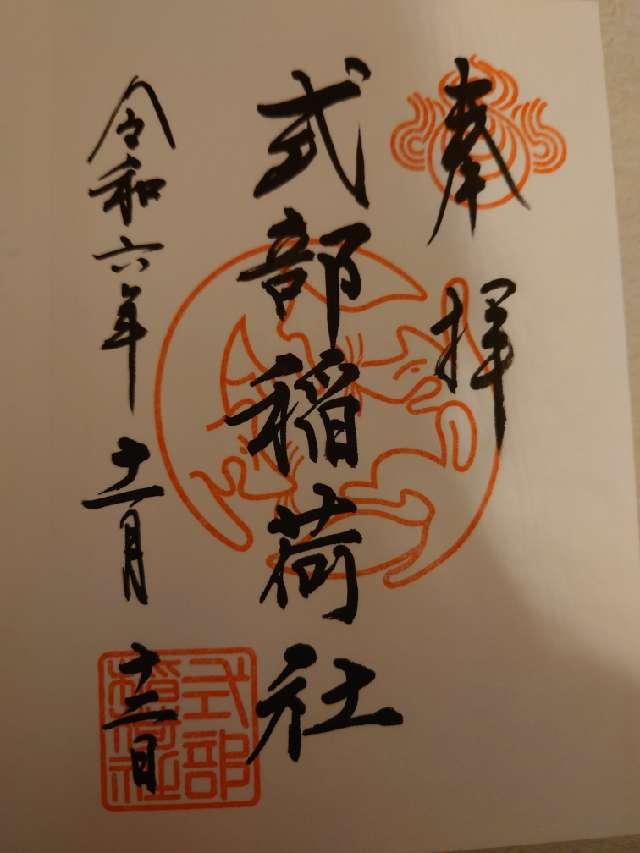 奉拝
式部稲荷社
令和六年十一月十二日
式部稲荷社